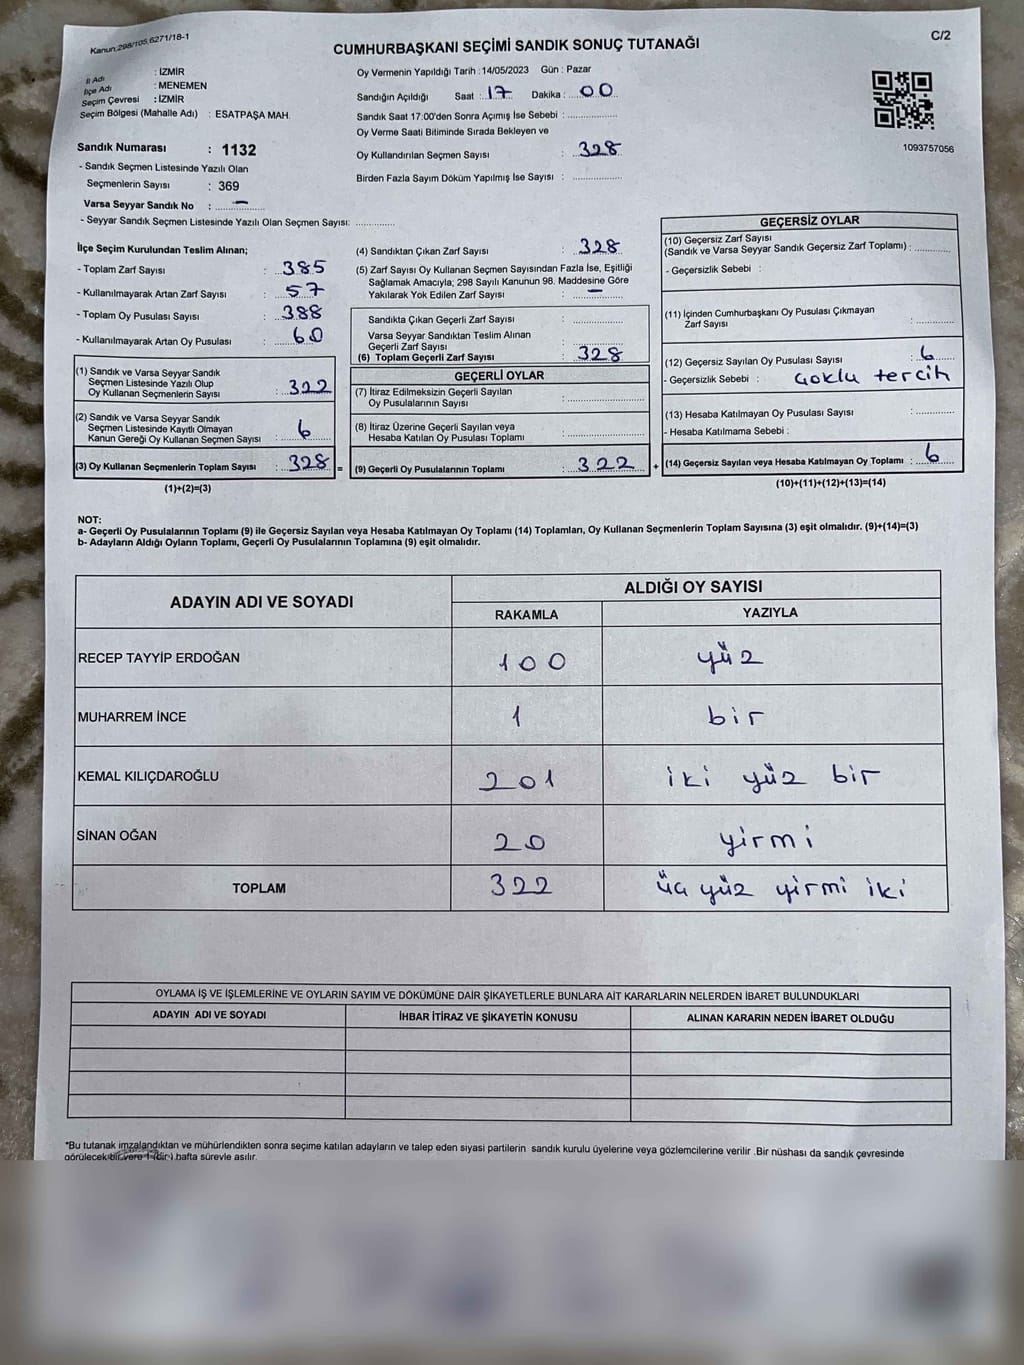 Kanun.298/105,6271/18-1
CUMHURBAŞKANI SEÇİMİ SANDIK SONUÇ TUTANAĞI
C/2
İl Adı : İZMİR
İlçe Adı : MENEMEN
Seçim Çevresi : İZMİR
Seçim Bölgesi (Mahalle Adı) : ESATPAŞA MAH.
Oy Vermenin Yapıldığı Tarih : 14/05/2023 Gün : Pazar
Sandığın Açıldığı Saat : 17 Dakika : 00
Sandık Saat 17:00'den Sonra Açımış İse Sebebi :
Oy Verme Saati Bitiminde Sırada Bekleyen ve
Oy Kullandırılan Seçmen Sayısı : 328
Birden Fazla Sayım Döküm Yapılmış İse Sayısı :
1093757056
Sandık Numarası : 1132
- Sandık Seçmen Listesinde Yazılı Olan
Seçmenlerin Sayısı : 369
Varsa Seyyar Sandık No : –
- Seyyar Sandık Seçmen Listesinde Yazılı Olan Seçmen Sayısı:
İlçe Seçim Kurulundan Teslim Alınan;
- Toplam Zarf Sayısı : 385
- Kullanılmayarak Artan Zarf Sayısı : 57
- Toplam Oy Pusulası Sayısı : 388
- Kullanılmayarak Artan Oy Pusulası : 60
(1) Sandık ve Varsa Seyyar Sandık
Seçmen Listesinde Yazılı Olup
Oy Kullanan Seçmenlerin Sayısı : 322
(2) Sandık ve Varsa Seyyar Sandık
Seçmen Listesinde Kayıtlı Olmayan
Kanun Gereği Oy Kullanan Seçmen Sayısı : 6
(3) Oy Kullanan Seçmenlerin Toplam Sayısı : 328 =
(1)+(2)=(3)
(4) Sandıktan Çıkan Zarf Sayısı : 328
(5) Zarf Sayısı Oy Kullanan Seçmen Sayısından Fazla İse, Eşitliği
Sağlamak Amacıyla; 298 Sayılı Kanunun 98. Maddesine Göre
Yakılarak Yok Edilen Zarf Sayısı : –
Sandıkta Çıkan Geçerli Zarf Sayısı :
Varsa Seyyar Sandıktan Teslim Alınan
Geçerli Zarf Sayısı :
(6) Toplam Geçerli Zarf Sayısı : 328
GEÇERLİ OYLAR
(7) İtiraz Edilmeksizin Geçerli Sayılan
Oy Pusulalarının Sayısı :
(8) İtiraz Üzerine Geçerli Sayılan veya
Hesaba Katılan Oy Pusulası Toplamı :
(9) Geçerli Oy Pusulalarının Toplamı : 322 +
GEÇERSİZ OYLAR
(10) Geçersiz Zarf Sayısı
(Sandık ve Varsa Seyyar Sandık Geçersiz Zarf Toplamı) :
- Geçersizlik Sebebi :
(11) İçinden Cumhurbaşkanı Oy Pusulası Çıkmayan
Zarf Sayısı :
(12) Geçersiz Sayılan Oy Pusulası Sayısı : 6
- Geçersizlik Sebebi : Çoklu tercih
(13) Hesaba Katılmayan Oy Pusulası Sayısı :
- Hesaba Katılmama Sebebi :
(14) Geçersiz Sayılan veya Hesaba Katılmayan Oy Toplamı : 6
(10)+(11)+(12)+(13)=(14)
NOT:
a- Geçerli Oy Pusulalarının Toplamı (9) ile Geçersiz Sayılan veya Hesaba Katılmayan Oy Toplamı (14) Toplamları, Oy Kullanan Seçmenlerin Toplam Sayısına (3) eşit olmalıdır. (9)+(14)=(3)
b- Adayların Aldığı Oyların Toplamı, Geçerli Oy Pusulalarının Toplamına (9) eşit olmalıdır.
ADAYIN ADI VE SOYADI
ALDIĞI OY SAYISI
RAKAMLA YAZIYLA
RECEP TAYYİP ERDOĞAN 100 yüz
MUHARREM İNCE 1 bir
KEMAL KILIÇDAROĞLU 201 iki yüz bir
SİNAN OĞAN 20 yirmi
TOPLAM 322 üç yüz yirmi iki
OYLAMA İŞ VE İŞLEMLERİNE VE OYLARIN SAYIM VE DÖKÜMÜNE DAİR ŞİKAYETLERLE BUNLARA AİT KARARLARIN NELERDEN İBARET BULUNDUKLARI
ADAYIN ADI VE SOYADI İHBAR İTİRAZ VE ŞİKAYETİN KONUSU ALINAN KARARIN NEDEN İBARET OLDUĞU
*Bu tutanak imzalandıktan ve mühürlendikten sonra seçime katılan adayların ve talep eden siyasi partilerin sandık kurulu üyelerine veya gözlemcilerine verilir .Bir nüshası da sandık çevresinde
görülecek bir yere 1 (bir) hafta süreyle asılır.